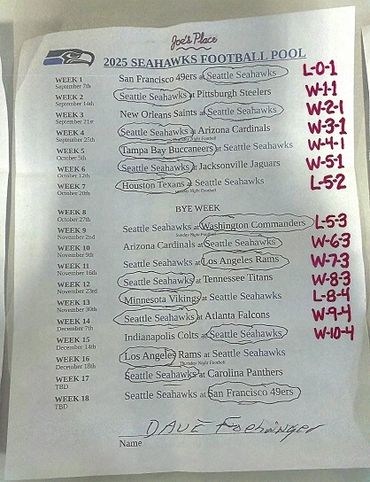 Joe's Place
2025 SEAHAWKS FOOTBALL POOL
WEEK 1 San Francisco 49ers at Seattle Seahawks L-0-1
September 7th
WEEK 2 Seattle Seahawks at Pittsburgh Steelers W-1-1
September 14th
WEEK 3 New Orleans Saints at Seattle Seahawks W-2-1
September 21st
WEEK 4 Seattle Seahawks at Arizona Cardinals W-3-1
September 25th Thursday Night Football
WEEK 5 Tampa Bay Buccaneers at Seattle Seahawks W-4-1
October 5th
WEEK 6 Seattle Seahawks at Jacksonville Jaguars W-5-1
October 12th
WEEK 7 Houston Texans at Seattle Seahawks L-5-2
October 20th
WEEK 8 BYE WEEK
October 27th
WEEK 9 Seattle Seahawks at Washington Commanders L-5-3
November 2nd Sunday Night Football
WEEK 10 Arizona Cardinals at Seattle Seahawks W-6-3
November 9th
WEEK 11 Seattle Seahawks at Los Angeles Rams W-7-3
November 16th
WEEK 12 Seattle Seahawks at Tennessee Titans W-8-3
November 23rd
WEEK 13 Minnesota Vikings at Seattle Seahawks L-8-4
November 30th
WEEK 14 Seattle Seahawks at Atlanta Falcons W-9-4
December 7th
WEEK 15 Indianapolis Colts at Seattle Seahawks W-10-4
December 14th
WEEK 16 Los Angeles Rams at Seattle Seahawks
December 18th Thursday Night Football
WEEK 17 Seattle Seahawks at Carolina Panthers
TBD
WEEK 18 Seattle Seahawks at San Francisco 49ers
TBD
DAVE
Name